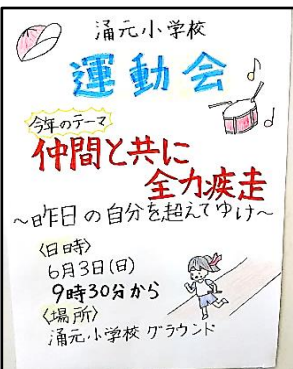 涌元小学校
運動会
今年のテーマ
仲間と共に
全力疾走
～昨日の自分を超えてゆけ～
〈日時〉
6月3日(日)
9時30分から
〈場所〉
涌元小学校 グラウンド